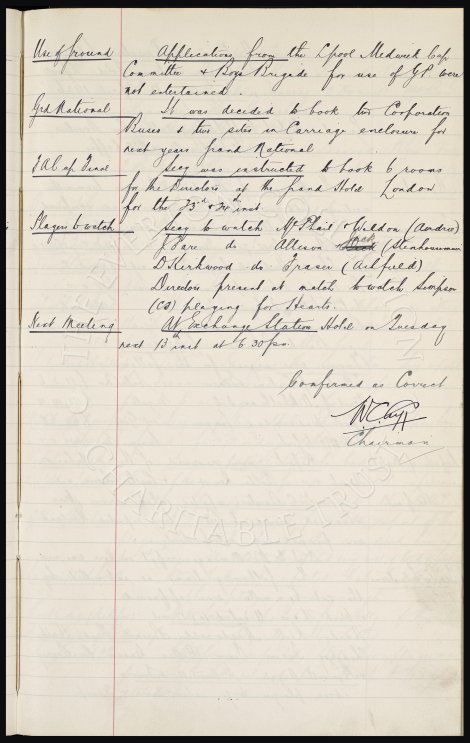 Use of Ground Applications from the Lpool Medweek Cup
Committee & Boys Brigade for use of G.P. were
not entertained.
Grd National It was decided to book two Corporation
Buses & two sites in Carriage enclosure for
next years Grand National
F A Cup Final Secy was instructed to book 6 rooms
for the Directors at the Grand Hotel London
for the 23rd & 24th inst.
Players to watch Secy to watch McPhail & Weldon (Airdrie)
J. Fare do Allison (Stenhousemuir
D Kirkwood do Fraser (Ashfield)
Directors present at match to watch Simpson
(CS) playing for Hearts.
Next Meeting At Exchange Station Hotel on Tuesday
next 13th inst at 6.30 pm.
Confirmed as Correct
Chairman
THE EVERTON COLLECTION
CHARITABLE TRUST